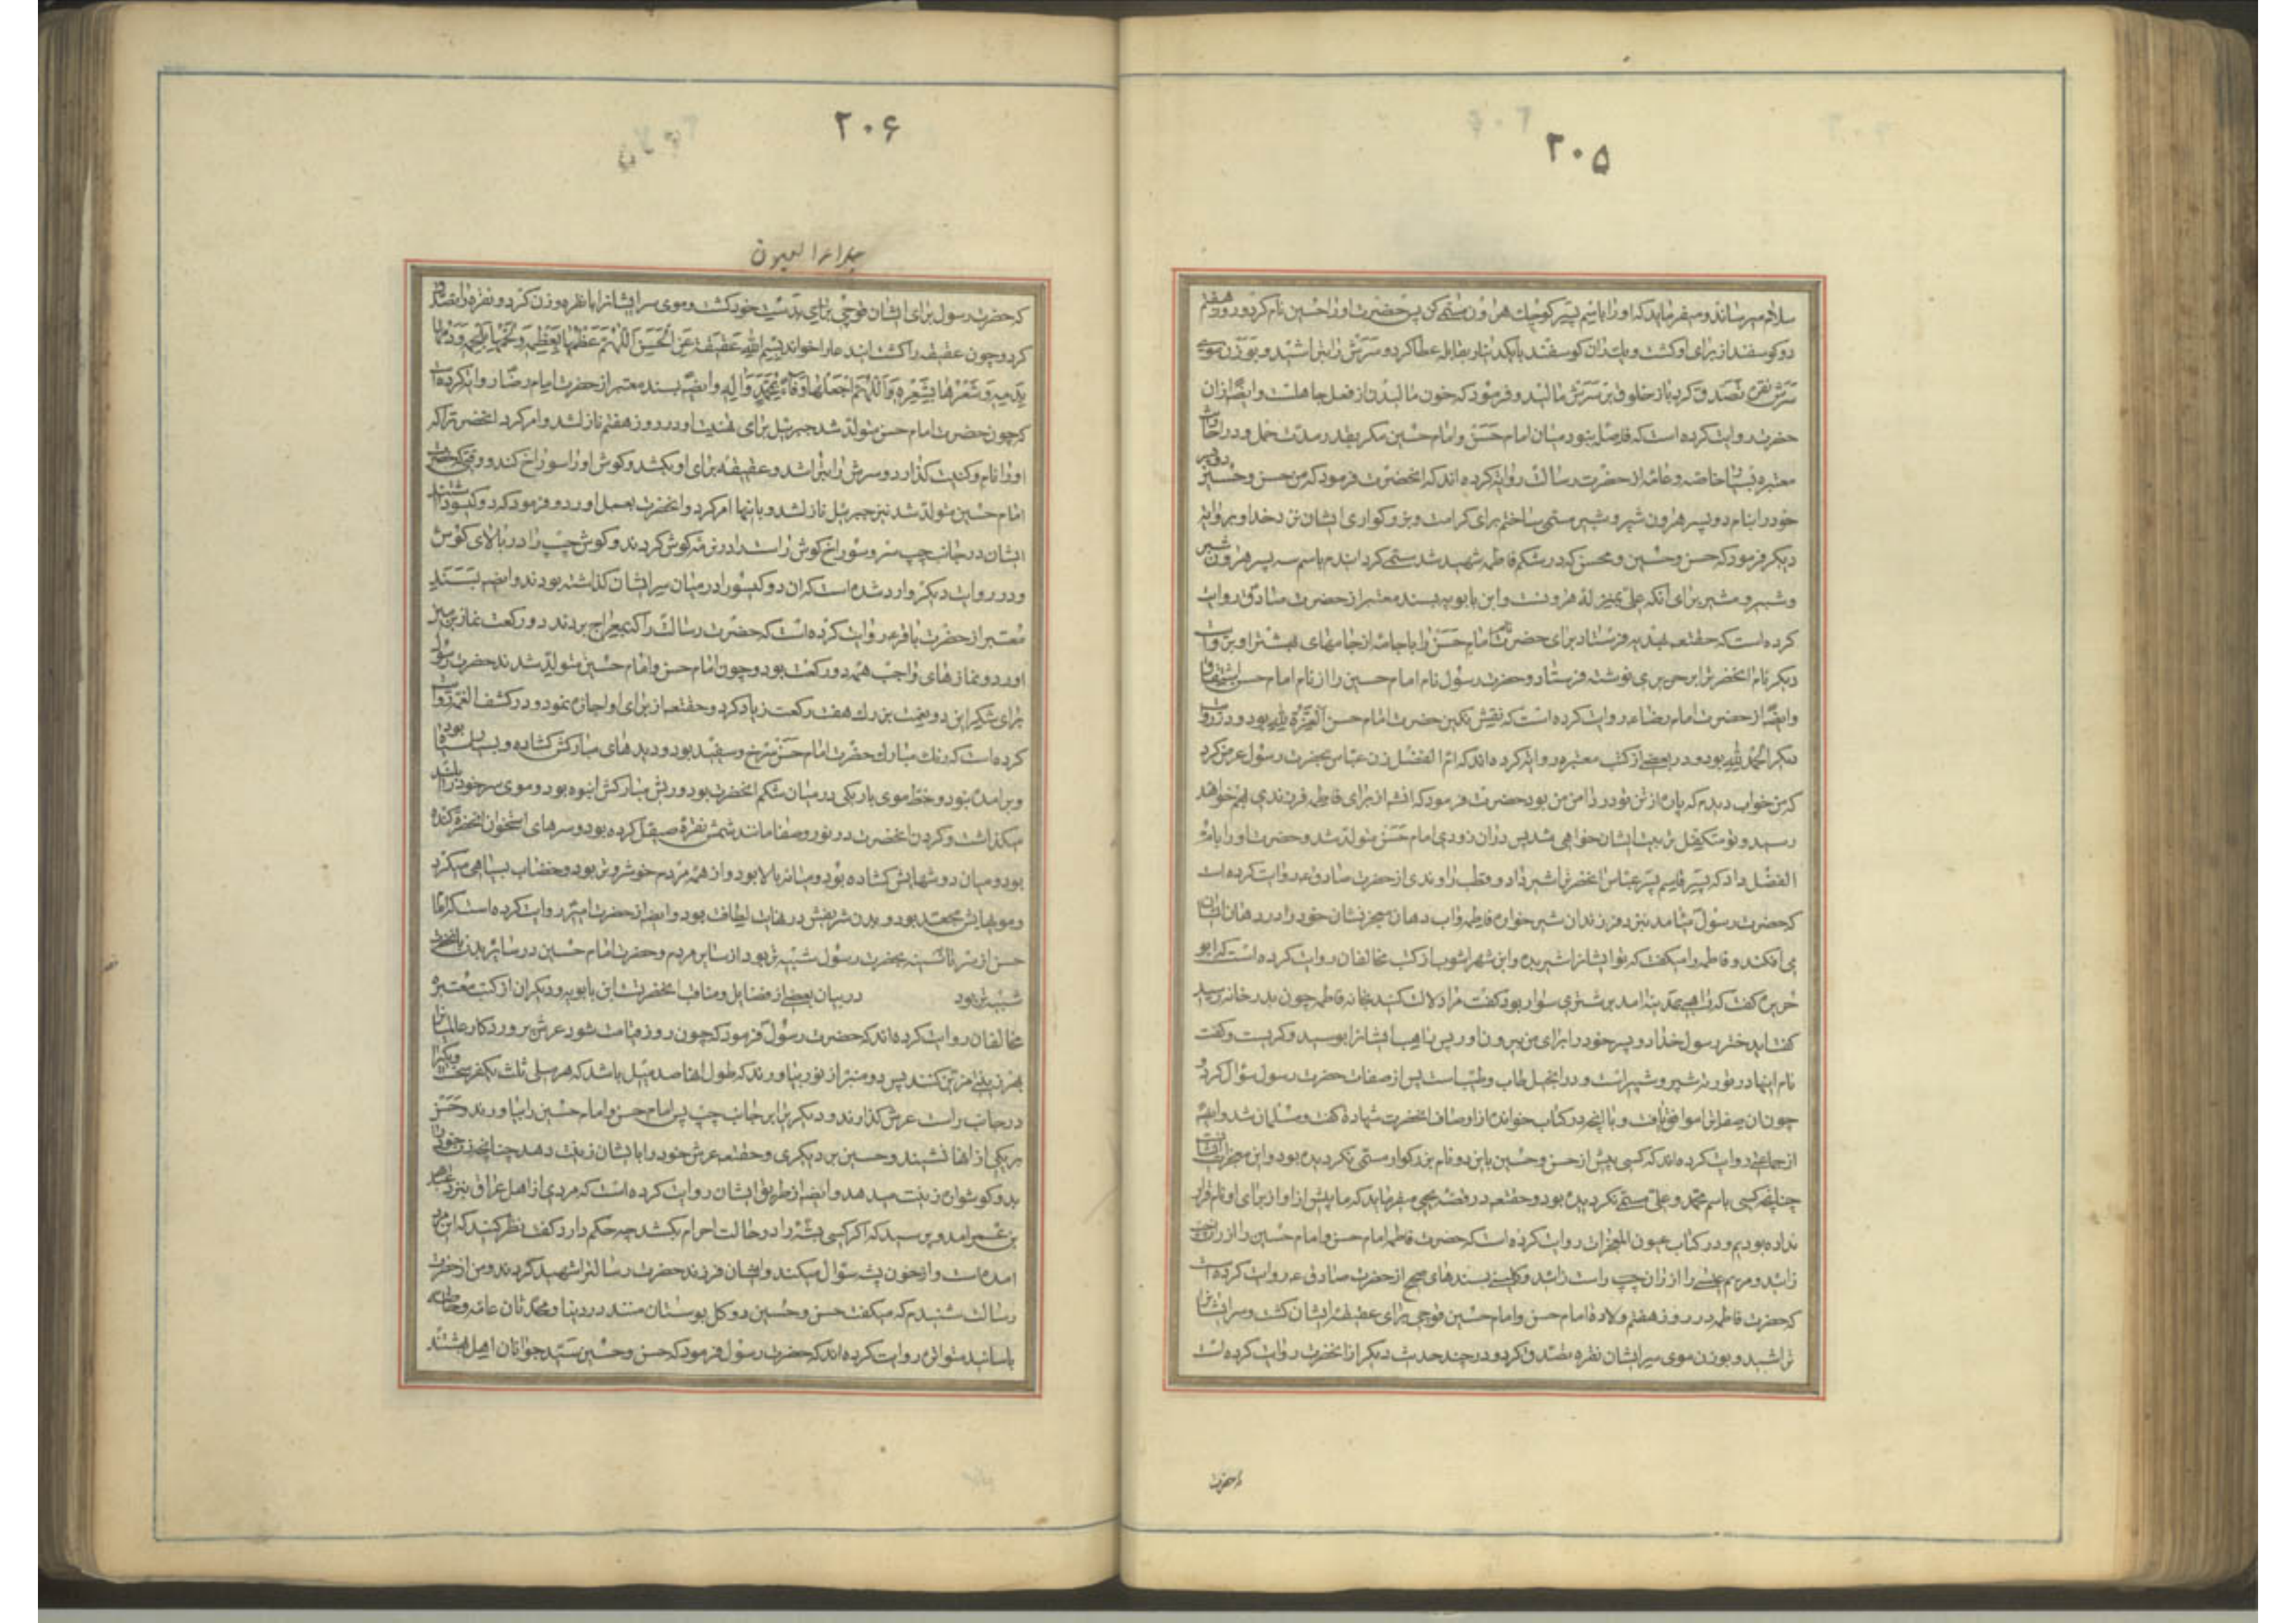 ۲۰۵
سلام میرساند و میفرماید که او را باسم پسر کوچک هرون مسمی کن پس حضرت او را حسین نام کرد و روز هفتم
دو کوسفند از برای او کشت و یک ران کوسفند با یکدینار بقابله عطا کرد و سرش را بتراشید و بوزن موی
سرش نقره تصدق کرد باز خلوق بر سرش مالید و فرمود که خون مالیدن از فعل جاهلیت است و ایضا از ان
حضرت روایت کرده است که فاصله نبود میان امام حسن و امام حسین مکر بقدر مدت حمل و در احادیث
معتبره بسیار خاصه و عامه از حضرت رسالت روایت کرده اند که انحضرت فرمود که من حسن و حسین
خود را بنام دو پسر هرون شبر و شبیر مسمی ساختم برای کرامت و بزرکواری ایشان نزد خدا و بروایت
دیکر فرمود که حسن و حسین و محسن که در شکم فاطمه شهید شد مسمی کردانیدم باسم سه پسر هرون شبر
و شبیر و مشبر برای انکه علی بمنزلة هرونست و ابن بابویه بسند معتبر از حضرت صادق روایت
کرده است که حقتعالی هدیه فرستاد برای حضرت نام امام حسن را با جامه از جامهای بهشت و بروایت
دیکر نام انحضرت را بر حریری نوشته فرستاد و حضرت رسول نام امام حسین را از نام امام حسن اشتقاق
وایضا از حضرت امام رضا ع روایت کرده است که نقش نکین حضرت امام حسن العزة لله بود و در روایت
دیکر الحمد لله بود و در بعضی از کتب معتبره روایت کرده اند که ام الفضل زن عباس بحضرت رسول عرض کرد
که من خواب دیدم که پاره از تن تو در دامن من بود حضرت فرمود که انشا از برای فاطمه فرزندی بهم خواهد
رسید و تو متکفل تربیت ایشان خواهی شد پس در ان زودی امام حسن متولد شد و حضرت او را بام
الفضل داد که بشیر قاسم پسر عباس انحضرت را شیر داد و قطب راوندی از حضرت صادق ع روایت کرده است
که حضرت رسول میامد نزد فرزندان شیر خواره فاطمه و اب دهان معجز نشان خود را در دهان ایشان
می افکند و فاطمه را میکفت که تو ایشانرا شیر مده و ابن شهراشوب از کتب مخالفان روایت کرده است که ابو
کفت که راهبی بمدینه امد بر شتری سوار بود کفت مرا دلالت کنید بخانه فاطمه چون بدر خانه رسید
کفت ای دختر رسول خدا دو پسر خود را برای من بیرون اور پس راهب ایشانرا بوسید و کریست و کفت
نام اینها در توریة شبیر و شبر است و در انجیل طاب و طیب است پس از صفات حضرت رسول سؤال کرد
چون ان صفات را موافق یافت و با انچه در کتاب خوانده از اوصاف انحضرت شهادة کفت و مسلمان شد وایضا
از جماعتی روایت کرده اند که کسی پیش از حسن و حسین باین دو نام بزرکوار مسمی نکردیده بود
چنانچه کسی باسم محمد و علی مسمی نکردیده بود و حقتعالی در قصه یحیی میفرماید که ما پیش از او از برای او نام قرار
نداده بودیم و در کتاب عیون المعجزات روایت کرده است که حضرت فاطمه امام حسن و امام حسین را از ران
زائید و مریم عیسی را از ران چپ راست زائید و کلینی بسندهای صحیح از حضرت صادق ع روایت کرده است
که حضرت فاطمه در روز هفتم ولادة امام حسن و امام حسین قوچی برای عقیقه ایشان کشت و سر ایشانرا
تراشید و بوزن موی سر ایشان نقره تصدق کرد و در چند حدیث دیکر از انحضرت روایت کرده است
که حضرت
۲۰۶
جلاء العیون
که حضرت رسول برای ایشان قوچی برای بدست خود کشت و موی سر ایشانرا با نقره وزن کرد و نقره را تصدق
کرد و چون عقیقه را کشت ایندعا را خواند بسم الله عقیقة عن الحسن اللهم عظمها بعظمه و لحمها بلحمه و دمها
بدمه و شعرها بشعره اللهم اجعلها وقاء لمحمد و اله وایضا بسند معتبر از حضرت امام رضا روایت کرده است
که چون حضرت امام حسن متولد شد جبرئیل برای تهنیت او در روز هفتم نازلشد و امر کرد انحضرترا که
او را نام و کنیت کذارد و سرش را بتراشد و عقیقه برای او بکشد و کوش او را سوراخ کند و وقتی که حضرت
امام حسین متولد شد نیز جبرئیل نازلشد و باینها امر کرد و انحضرت بعمل اورد و فرمود که دو کیسو داشتند
ایشان در جانب چپ سر و سوراخ کوش راست را در نرمه کوش کردند و کوش چپ را در بالای کوش
و در روایت دیکر وارد شده است که ان دو کیسو را در میان سر ایشان کذاشته بودند وایضا بسند
معتبر از حضرت باقر ع روایت کرده است که حضرت رسالت را که بمعراج بردند ده رکعت نماز بزیر
اورد و نمازهای واجب همه دو رکعت بود و چون امام حسن و امام حسین متولد شدند حضرت رسول
برای شکر این دو نعمت بزرک هفت رکعت زیاد کرد و حقتعالی از برای او اجازه نمود و در کشف الغمه روایت
کرده است که رنک مبارک حضرت امام حسن سرخ و سفید بود و دیدهای مبارکش کشاده و بسیار سیاه بود
و برامده نبود و خط موی باریکی در میان شکم انحضرت بود و ریش مبارکش انبوه بود و موی سر خود را بلند
میکذاشت و کردن انحضرت در نور و صفا مانند شمش نقره صیقل کرده بود و سرهای استخوان انحضرت کنده
بود و میان دوشهایش کشاده بود و میانه بالا بود و از همه مردم خوشروتر بود و خضاب بسیاهی میکرد
و مویهایش مجعد بود و بدن شریفش در نهایت لطافت بود وایضا از حضرت امیر روایت کرده است که امام
حسن از سر تا سینه بحضرت رسول شبیه تر بود از سایر مردم و حضرت امام حسین در سایر بدن بانحضرت
شبیه تر بود در بیان بعضی از فضایل و مناقب انحضرت ابن بابویه و دیکران از کتب معتبره
مخالفان روایت کرده اند که حضرت رسول فرمود که چون روز قیامت شود عرش پروردکار عالمیان را
بهر زینتی مزین کنند پس دو منبر از نور بیاورند که طول انها صد میل باشد که هر میلی ثلث یکفرسخ و یکی را
در جانب راست عرش کذارند و دیکری را بر جانب چپ پس امام حسن و امام حسین را بیاورند حسن
بر یکی از انها نشیند و حسین بر دیکری و حقتعالی عرش خود را بایشان زینت دهد چنانچه زن خود را
بدو کوشواره زینت میدهد وایضا از طریق ایشان روایت کرده است که مردی از اهل عراق بنزد عبدالله
بن عمر امد و پرسید که اکر کسی پشه را در حالت احرام بکشد چه حکم دارد کفت نظر کنید که این مرد
امده است و از خون پشه سؤال میکند و ایشان فرزند حضرت رسالترا شهید کردند و من از حضرت
رسالت شنیدم که میکفت حسن و حسین دو کل بوستان منند در دنیا و محدثان عامه و خاصه
باسانید متواتره روایت کرده اند که حضرت رسول فرمود که حسن و حسین سید جوانان اهل بهشتند